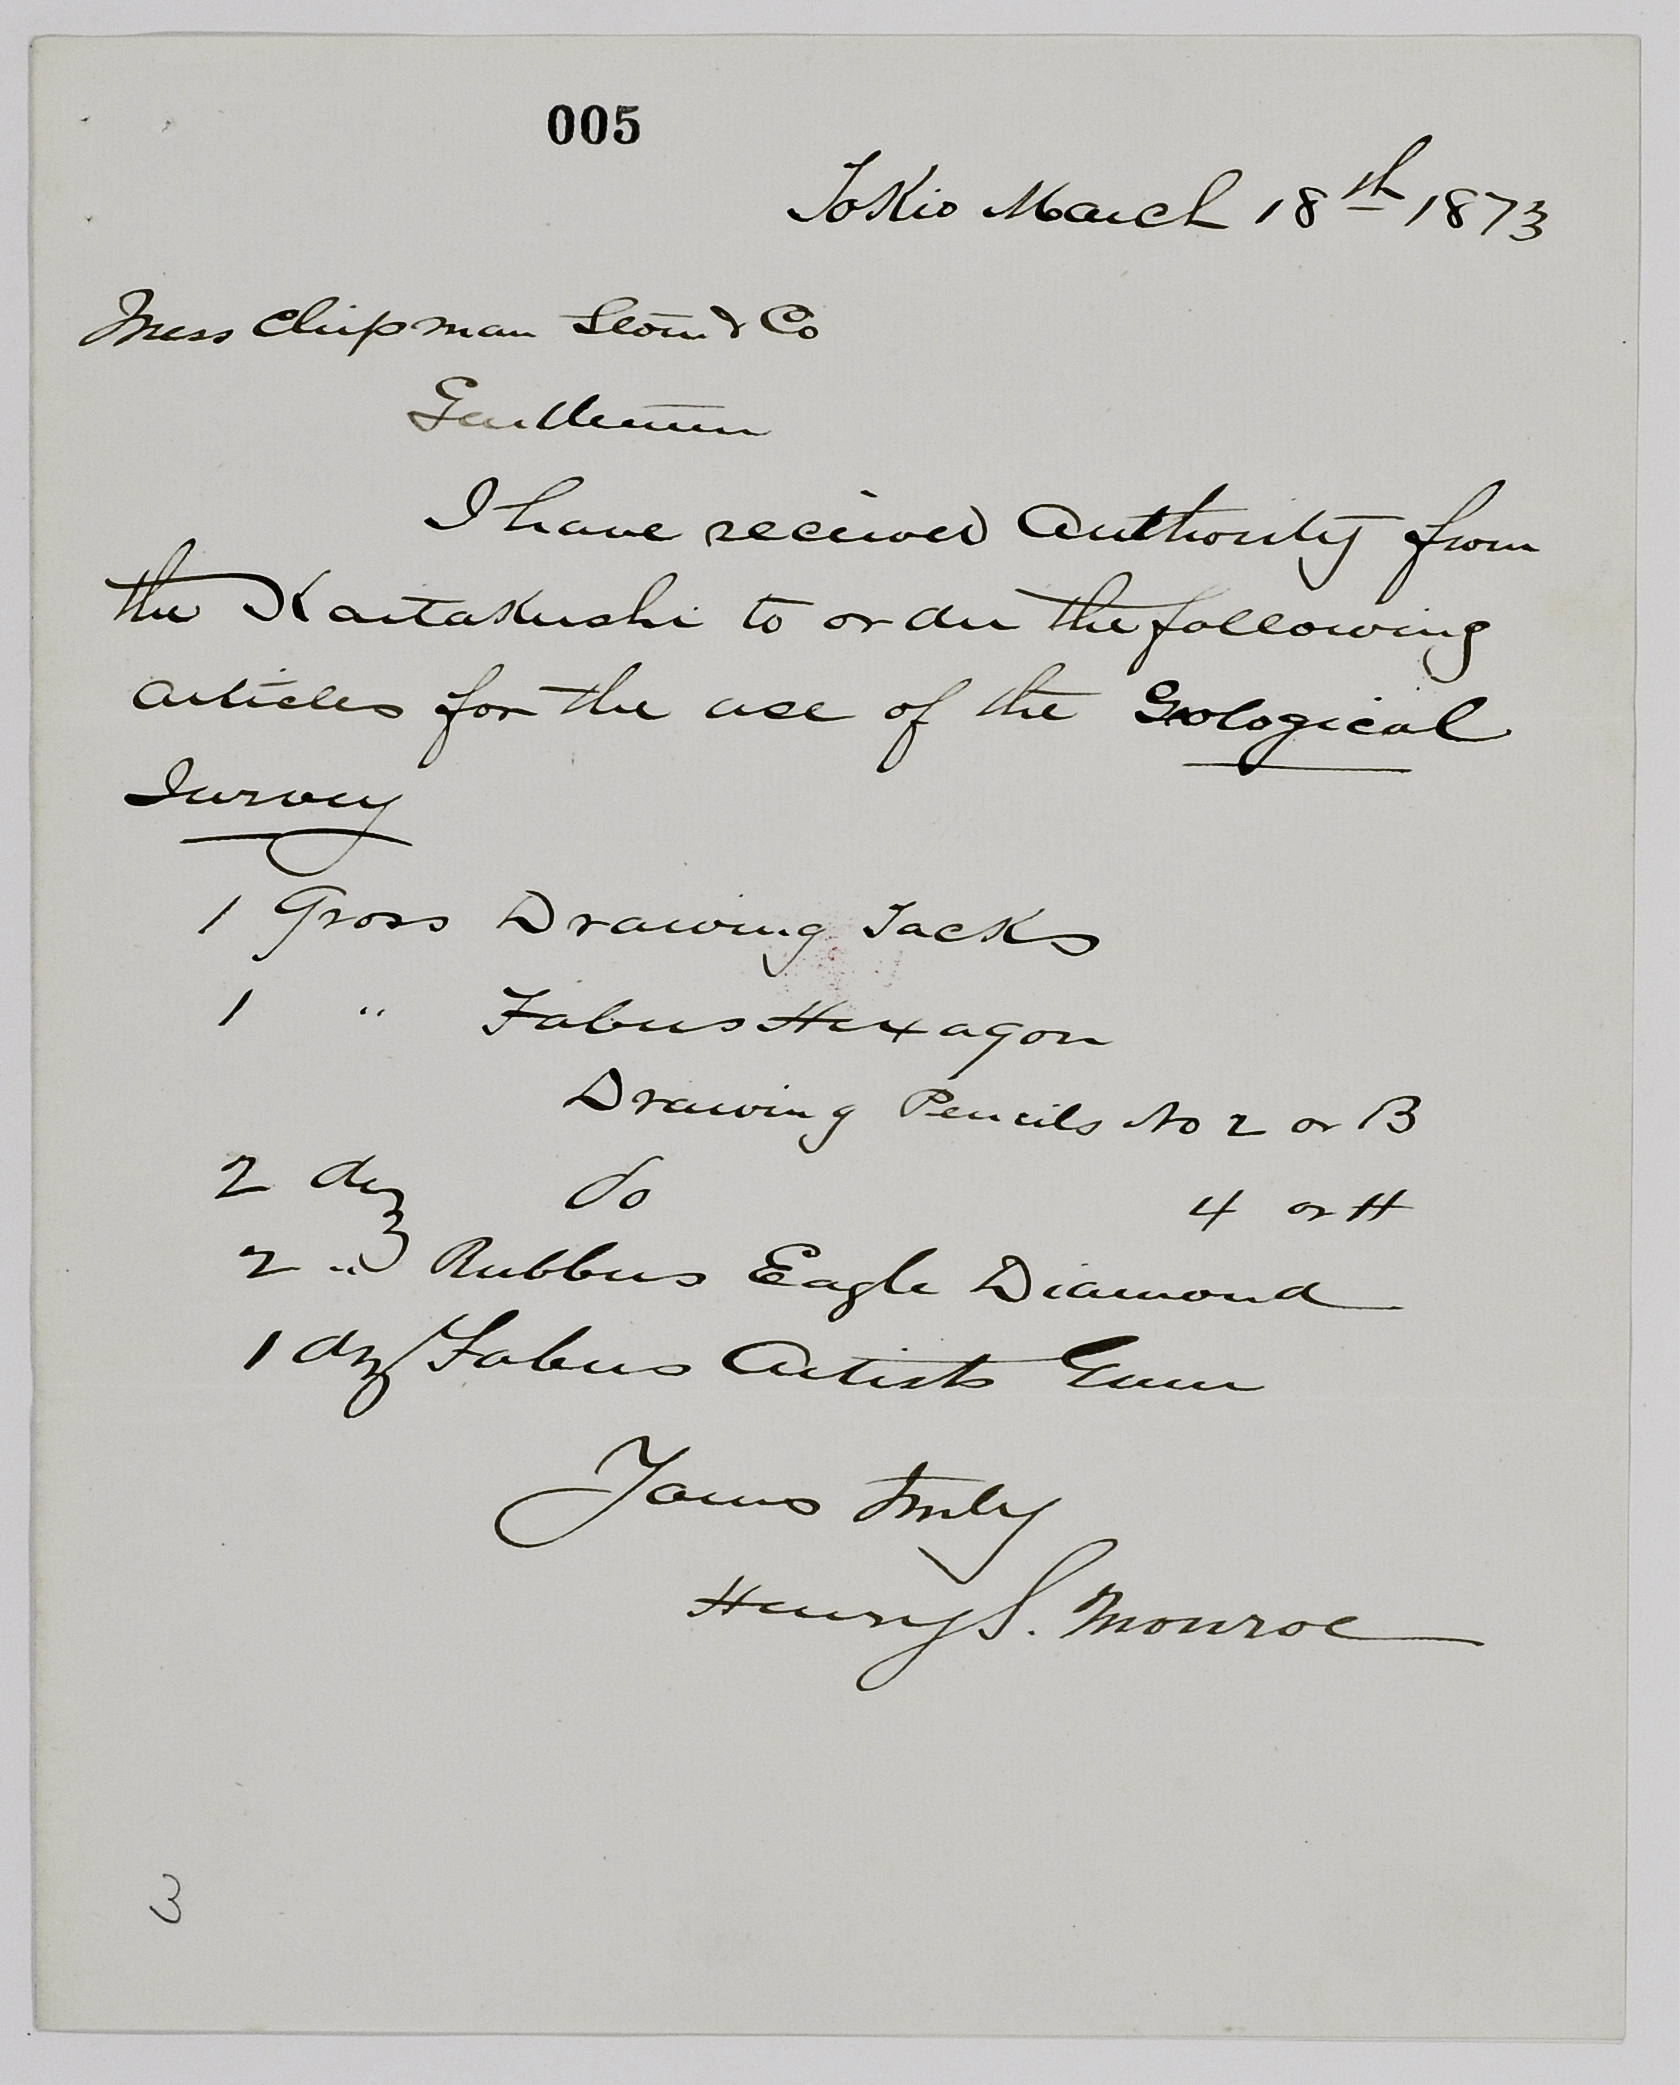 005
Tokio March 18th 1873
Mess Chipman Stone & Co
Gentlemen
I have received Authority from
the Kaitakushi to order the following
articles for the use of the Geological
Survey
1 Gross Drawing Tacks
1 " Fabers Hexagon
Drawing Pencils No 2 or B
2 doz do 4 or H
2 " Rubbers Eagle Diamond
1 dz Fabers Artists Gum
Yours truly
Henry S. Monroe
3